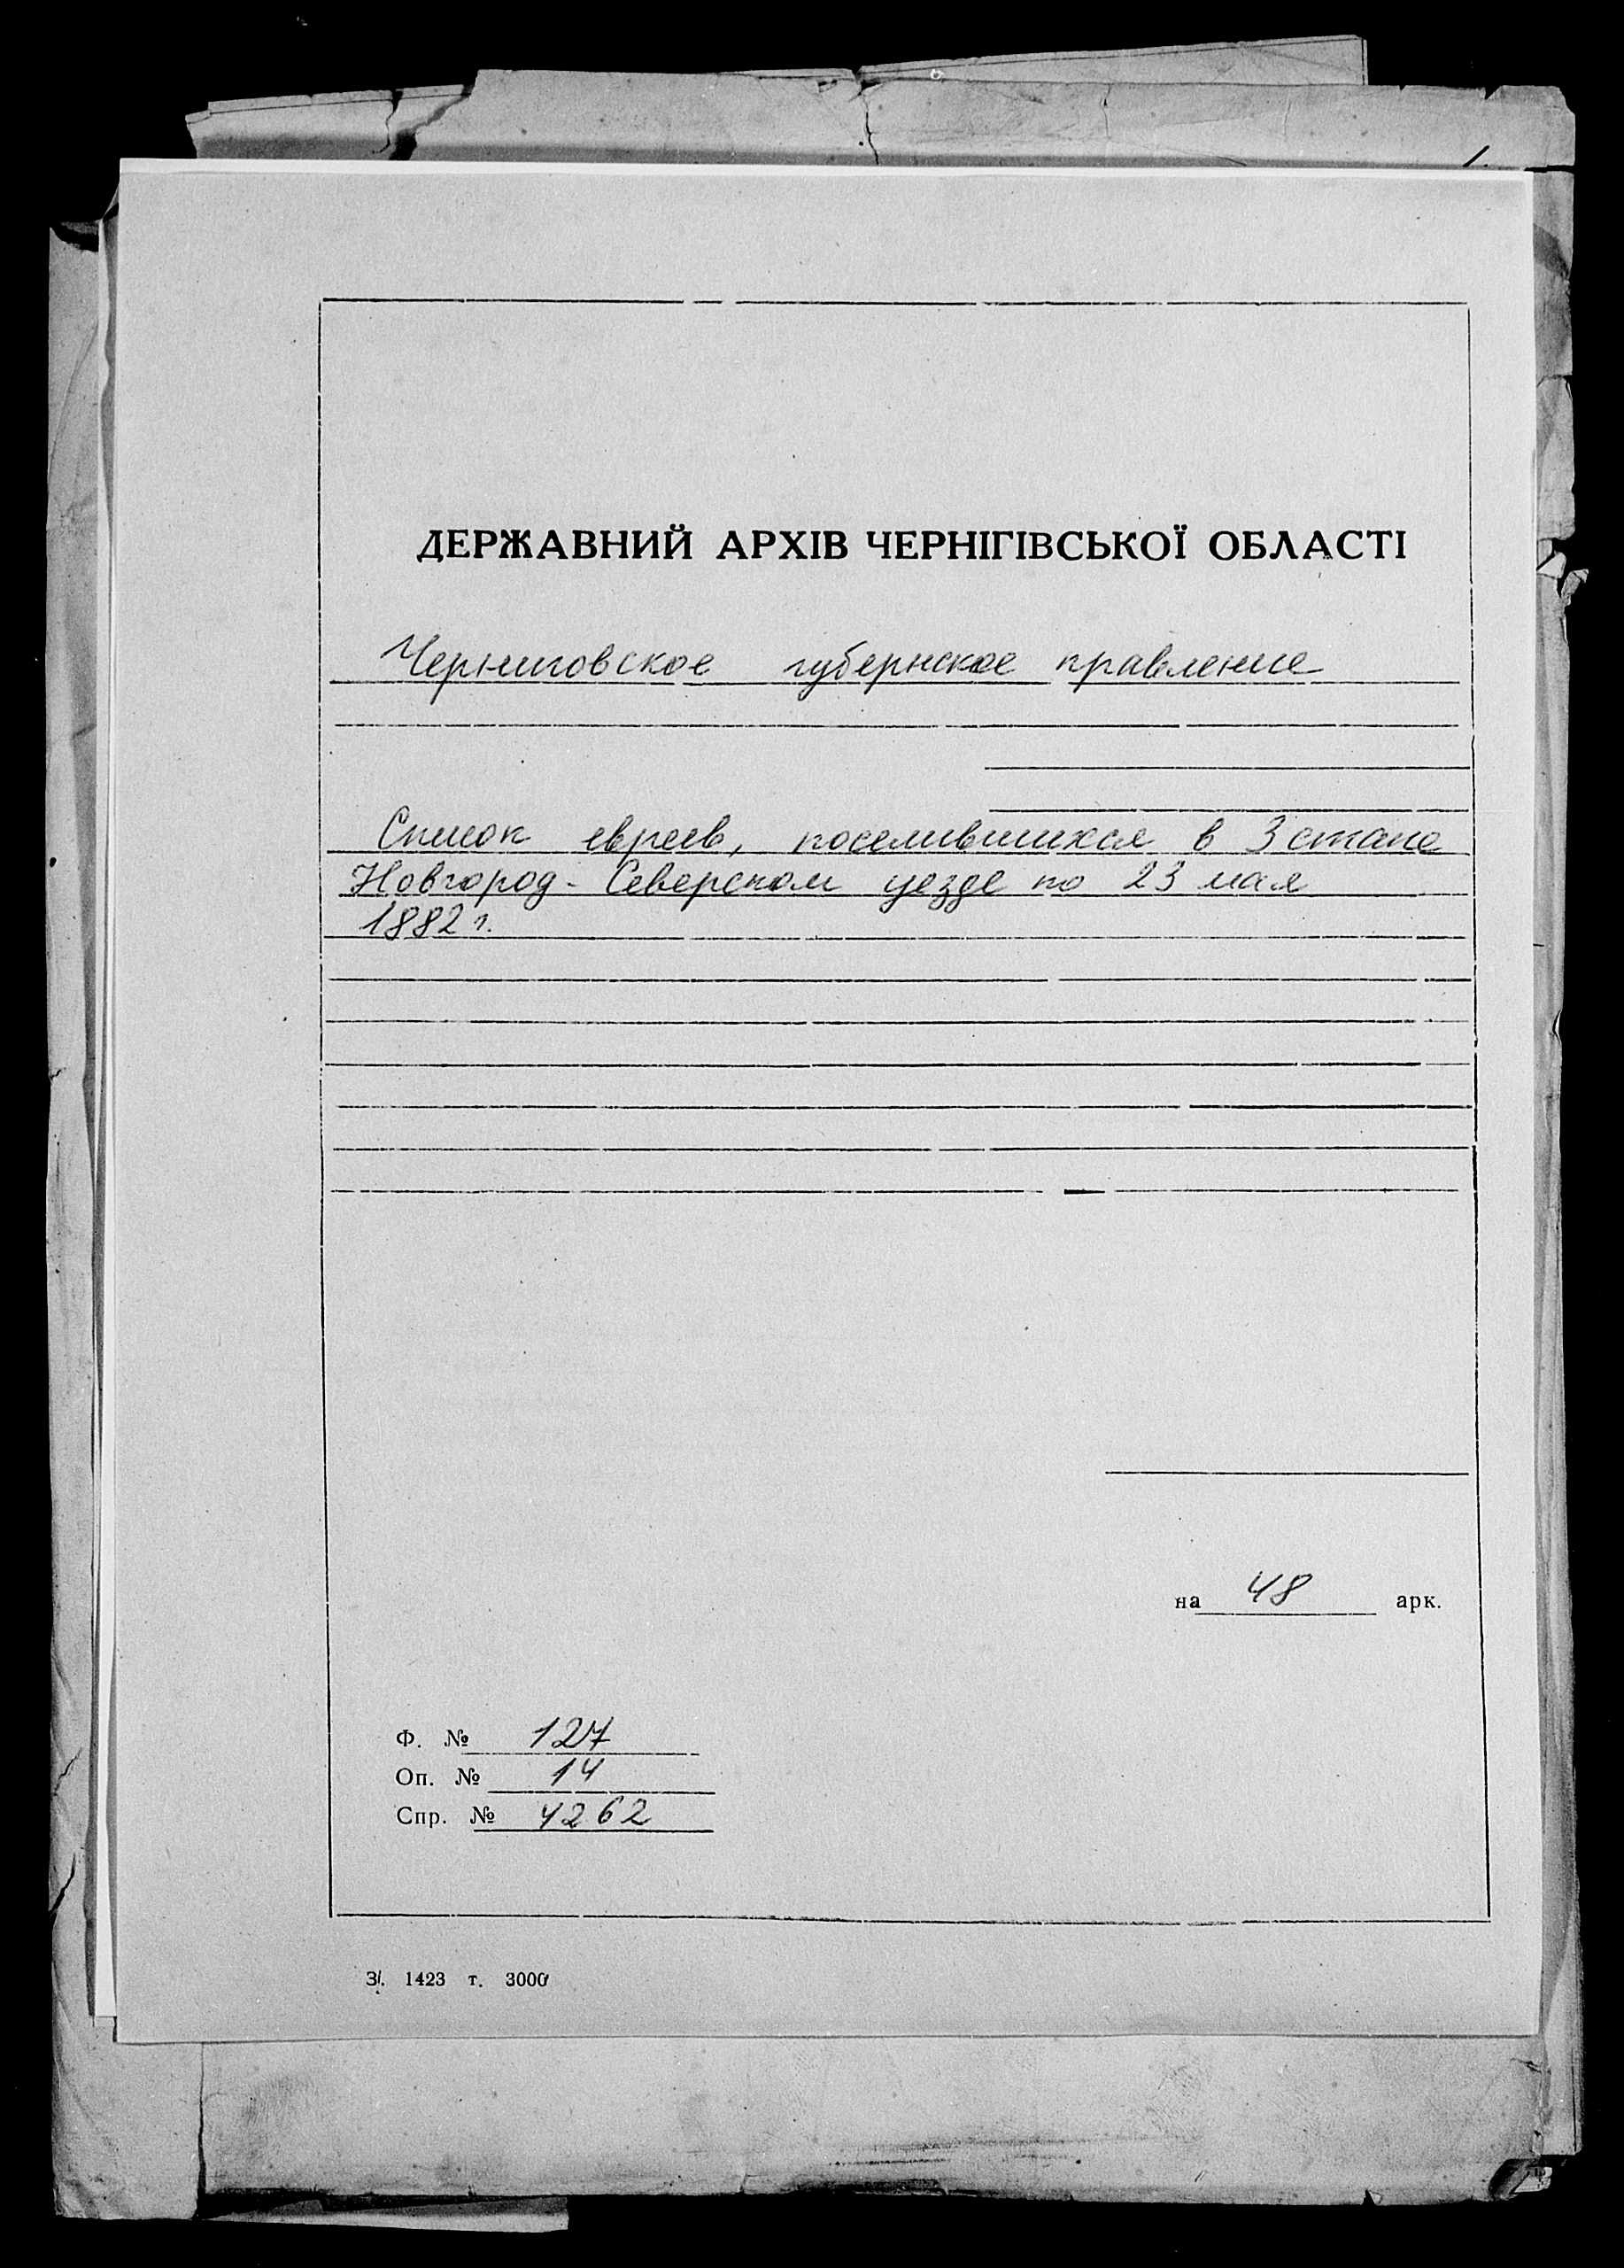 1.
ДЕРЖАВНИЙ АРХІВ ЧЕРНІГІВСЬКОЇ ОБЛАСТІ
Черниговское губернское правление
Список евреев, поселившихся в 3 стане
Новгород-Северском уезде по 23 мая
1882 г.
на 48 арк.
Ф. № 127
Оп. № 14
Спр. № 4262
З. 1423 т. 3000